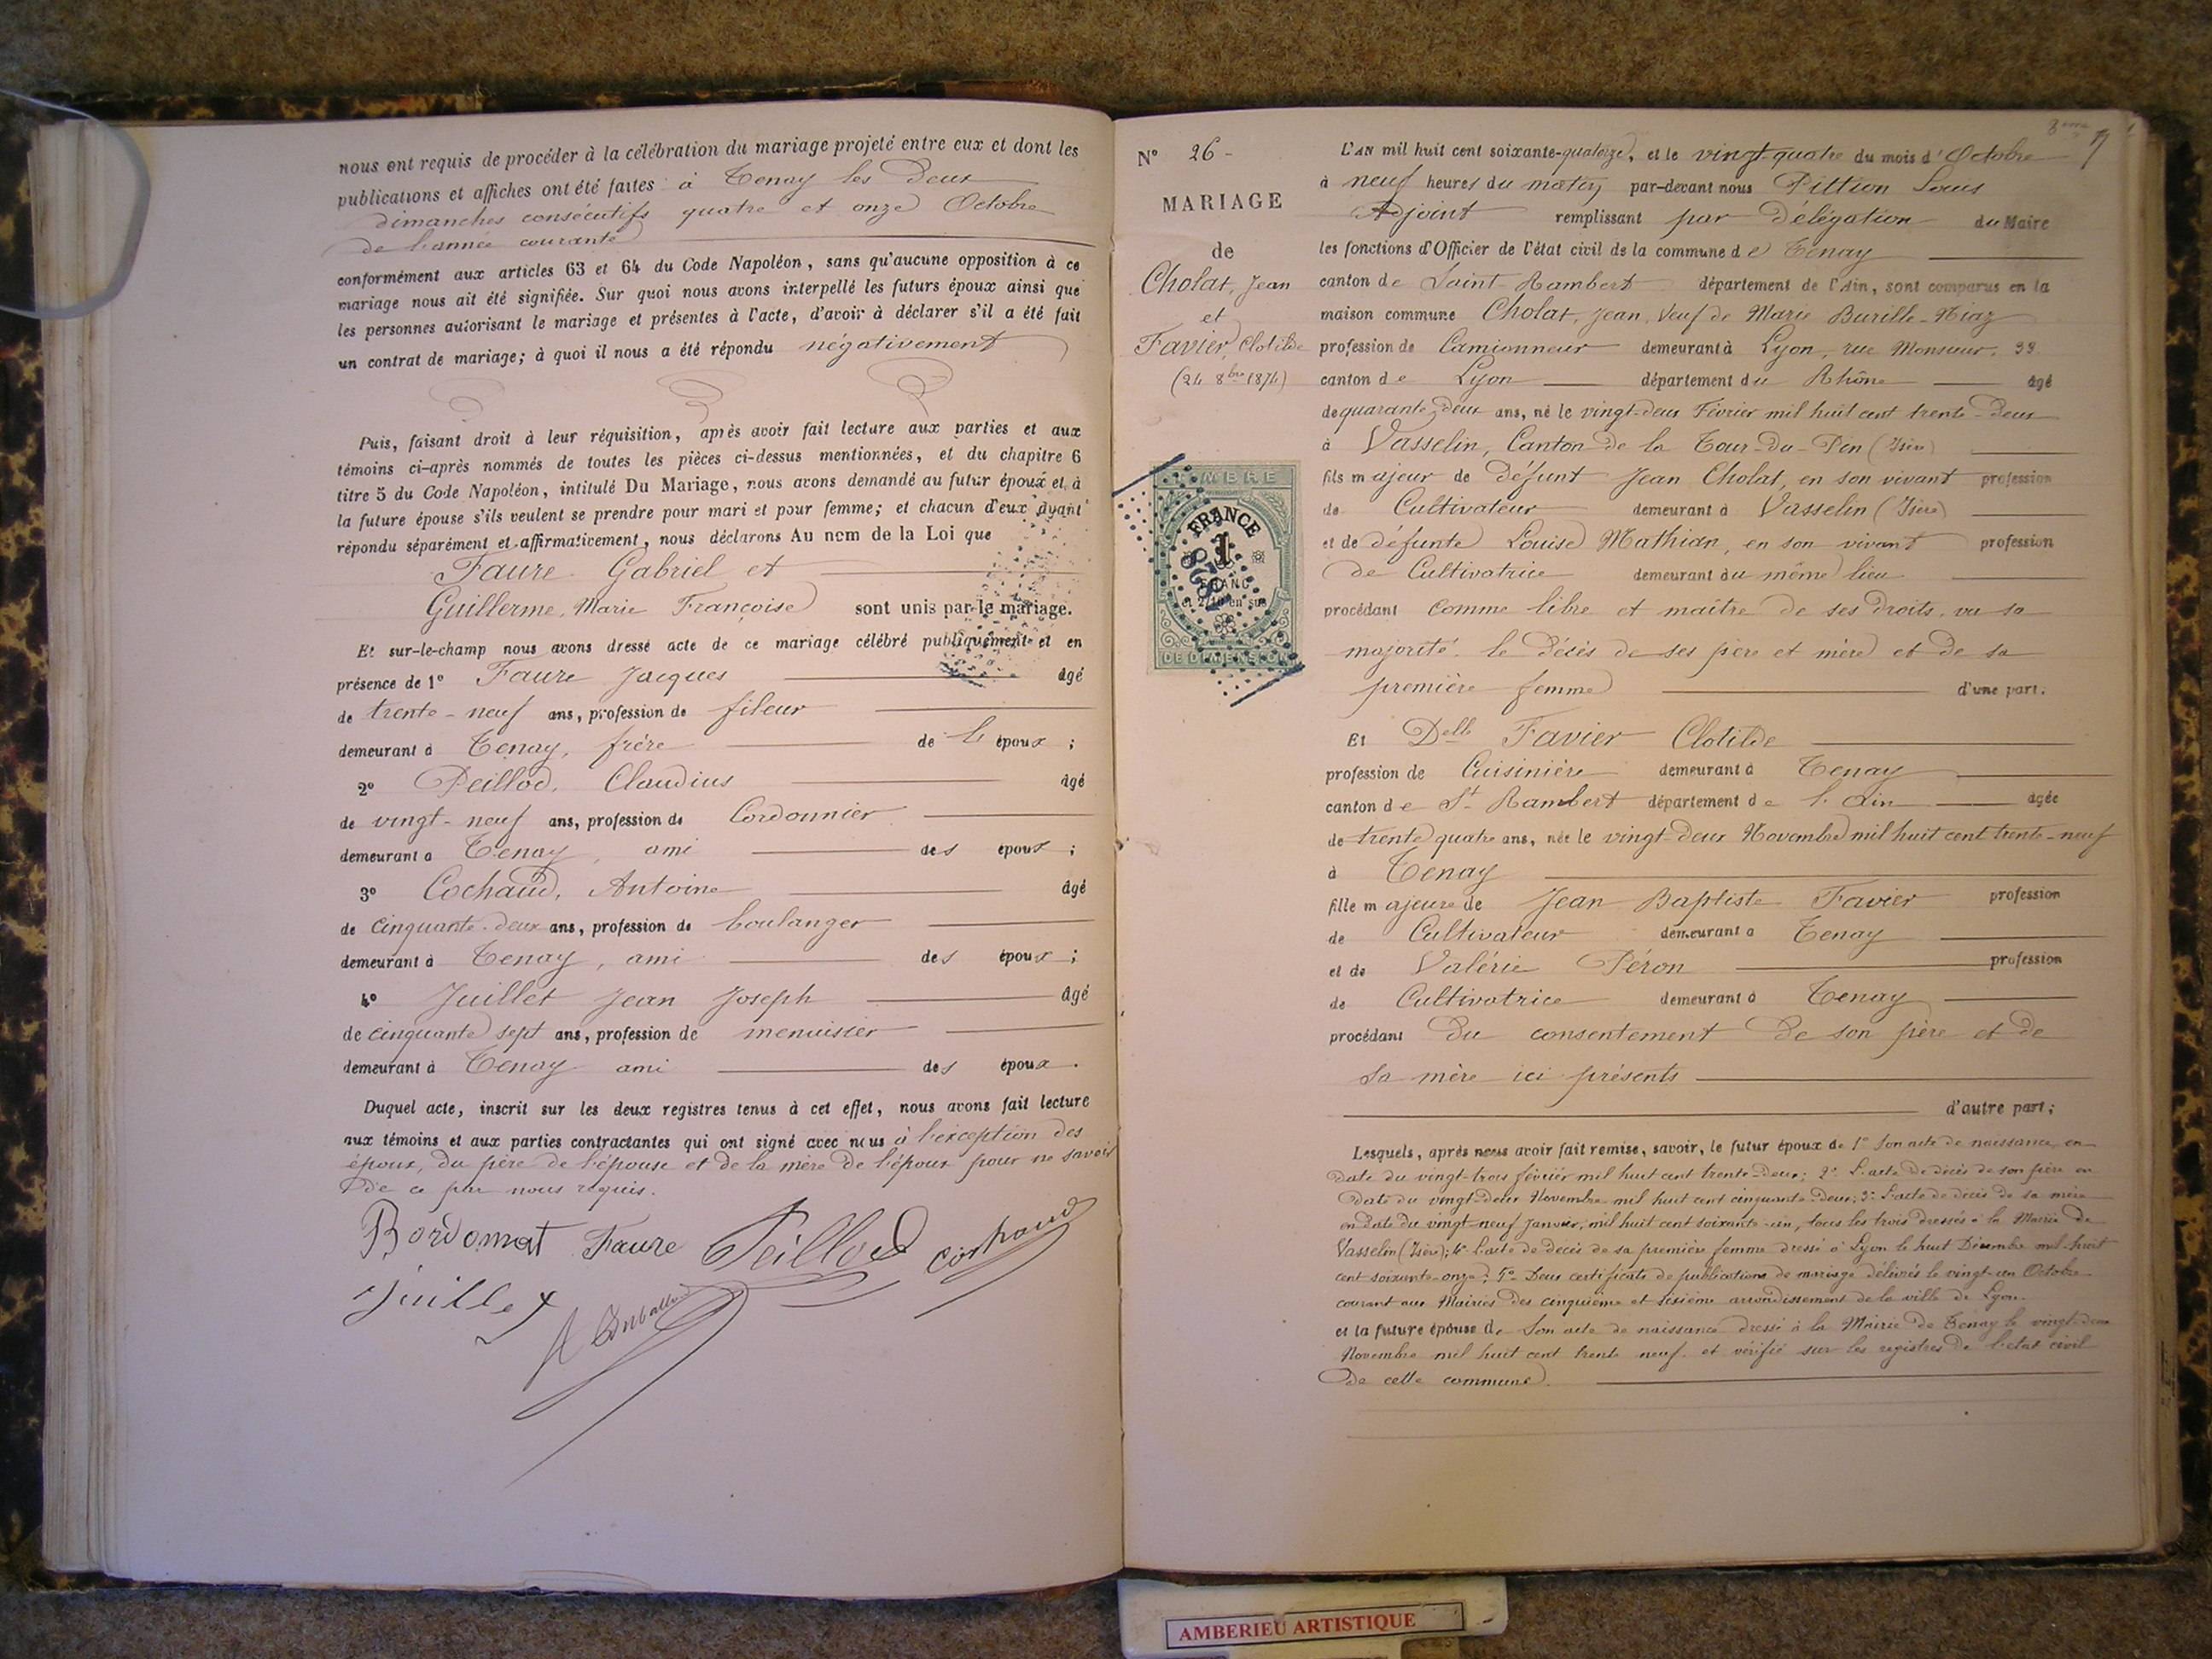 nous ont requis de procéder à la célébration du mariage projeté entre eux et dont les
publications et affiches ont été faites à Tenay les Deux
dimanches consécutifs quatre et onze Octobre
de l'année courante
conformément aux articles 63 et 64 du Code Napoléon, sans qu'aucune opposition à ce
mariage nous ait été signifiée. Sur quoi nous avons interpellé les futurs époux ainsi que
les personnes autorisant le mariage et présentes à l'acte, d'avoir à déclarer s'il a été fait
un contrat de mariage; à quoi il nous a été répondu négativement
Puis, faisant droit à leur réquisition, après avoir fait lecture aux parties et aux
témoins ci-après nommés de toutes les pièces ci-dessus mentionnées, et du chapitre 6
titre 5 du Code Napoléon, intitulé Du Mariage, nous avons demandé au futur époux et à
la future épouse s'ils veulent se prendre pour mari et pour femme; et chacun d'eux ayant
répondu séparément et affirmativement, nous déclarons Au nom de la Loi que
Faure Gabriel et
Guillerme, Marie Françoise sont unis par le mariage.
Et sur-le-champ nous avons dressé acte de ce mariage célébré publiquement et en
présence de 1° Faure Jacques âgé
de trente-neuf ans, profession de fileur
demeurant à Tenay, frère de l' époux ;
2° Peillod, Claudius âgé
de vingt-neuf ans, profession de Cordonnier
demeurant à Tenay, ami des époux ;
3° Cochaud, Antoine âgé
de cinquante-deux ans, profession de boulanger
demeurant à Tenay, ami des époux ;
4° Juillet Jean Joseph âgé
de cinquante sept ans, profession de menuisier
demeurant à Tenay ami des époux.
Duquel acte, inscrit sur les deux registres tenus à cet effet, nous avons fait lecture
aux témoins et aux parties contractantes qui ont signé avec nous à l'exception des
époux, du père de l'épouse et de la mère de l'époux pour ne savoir
De ce par nous requis.
Bordomat Faure Peillod Cochaud
Juillet
N° 26 -
MARIAGE
de
Cholat, Jean
et
Favier, Clotilde
(24 8bre 1874)
TIMBRE
FRANCE
1
FRANC
et 2/10 en sus
DE DIMENSION
8me 7
L'AN mil huit cent soixante-quatorze, et le vingt-quatre du mois d'Octobre
à neuf heures du matin par-devant nous Pittion Louis
Adjoint remplissant par Délégation du Maire
les fonctions d'Officier de l'état civil de la commune de Tenay
canton de Saint-Rambert département de l'Ain, sont comparus en la
maison commune Cholat, Jean, Veuf de Marie Burille-Niaz
profession de Camionneur demeurant à Lyon, rue Monsieur, 33
canton de Lyon département du Rhône âgé
de quarante-deux ans, né le vingt-deux Février mil huit cent trente-Deux
à Vasselin, Canton de la Tour-du-Pin (Isère)
fils majeur de Défunt Jean Cholat, en son vivant profession
de Cultivateur demeurant à Vasselin (Isère)
et de défunte Louise Mathian, en son vivant profession
de Cultivatrice demeurant au même lieu
procédant comme libre et maître de ses droits, vu sa
majorité, le Décès de ses père et mère et de sa
première femme d'une part.
Et Delle Favier Clotilde
profession de Cuisinière demeurant à Tenay
canton de St Rambert département de l'Ain âgée
de trente quatre ans, née le vingt-Deux Novembre mil huit cent trente-neuf
à Tenay
fille majeure de Jean Baptiste Favier profession
de Cultivateur demeurant à Tenay
et de Valérie Péron profession
de Cultivatrice demeurant à Tenay
procédant Du consentement De son père et de
sa mère ici présents
d'autre part;
Lesquels, après nous avoir fait remise, savoir, le futur époux de 1° Son acte de naissance en
Date du vingt-trois février mil huit cent trente-Deux; 2° L'acte de décès de son père en
Date du vingt-Deux Novembre mil huit cent cinquante-Deux; 3° l'acte de décès de sa mère
en date du vingt-neuf Janvier, mil huit cent soixante-un, tous les trois dressés à la Mairie de
Vasselin (Isère); 4° l'acte de décès de sa première femme dressé à Lyon le huit Décembre mil huit
cent soixante-onze; 5° Deux certificats de publications de mariage délivrés le vingt-un Octobre
courant aux Mairies des cinquième et sixième arrondissement de la ville de Lyon.
et la future épouse de Son acte de naissance dressé à la Mairie de Tenay le vingt-deux
Novembre mil huit cent trente neuf et vérifié sur les registres de l'état civil
De cette commune.
AMBERIEU ARTISTIQUE